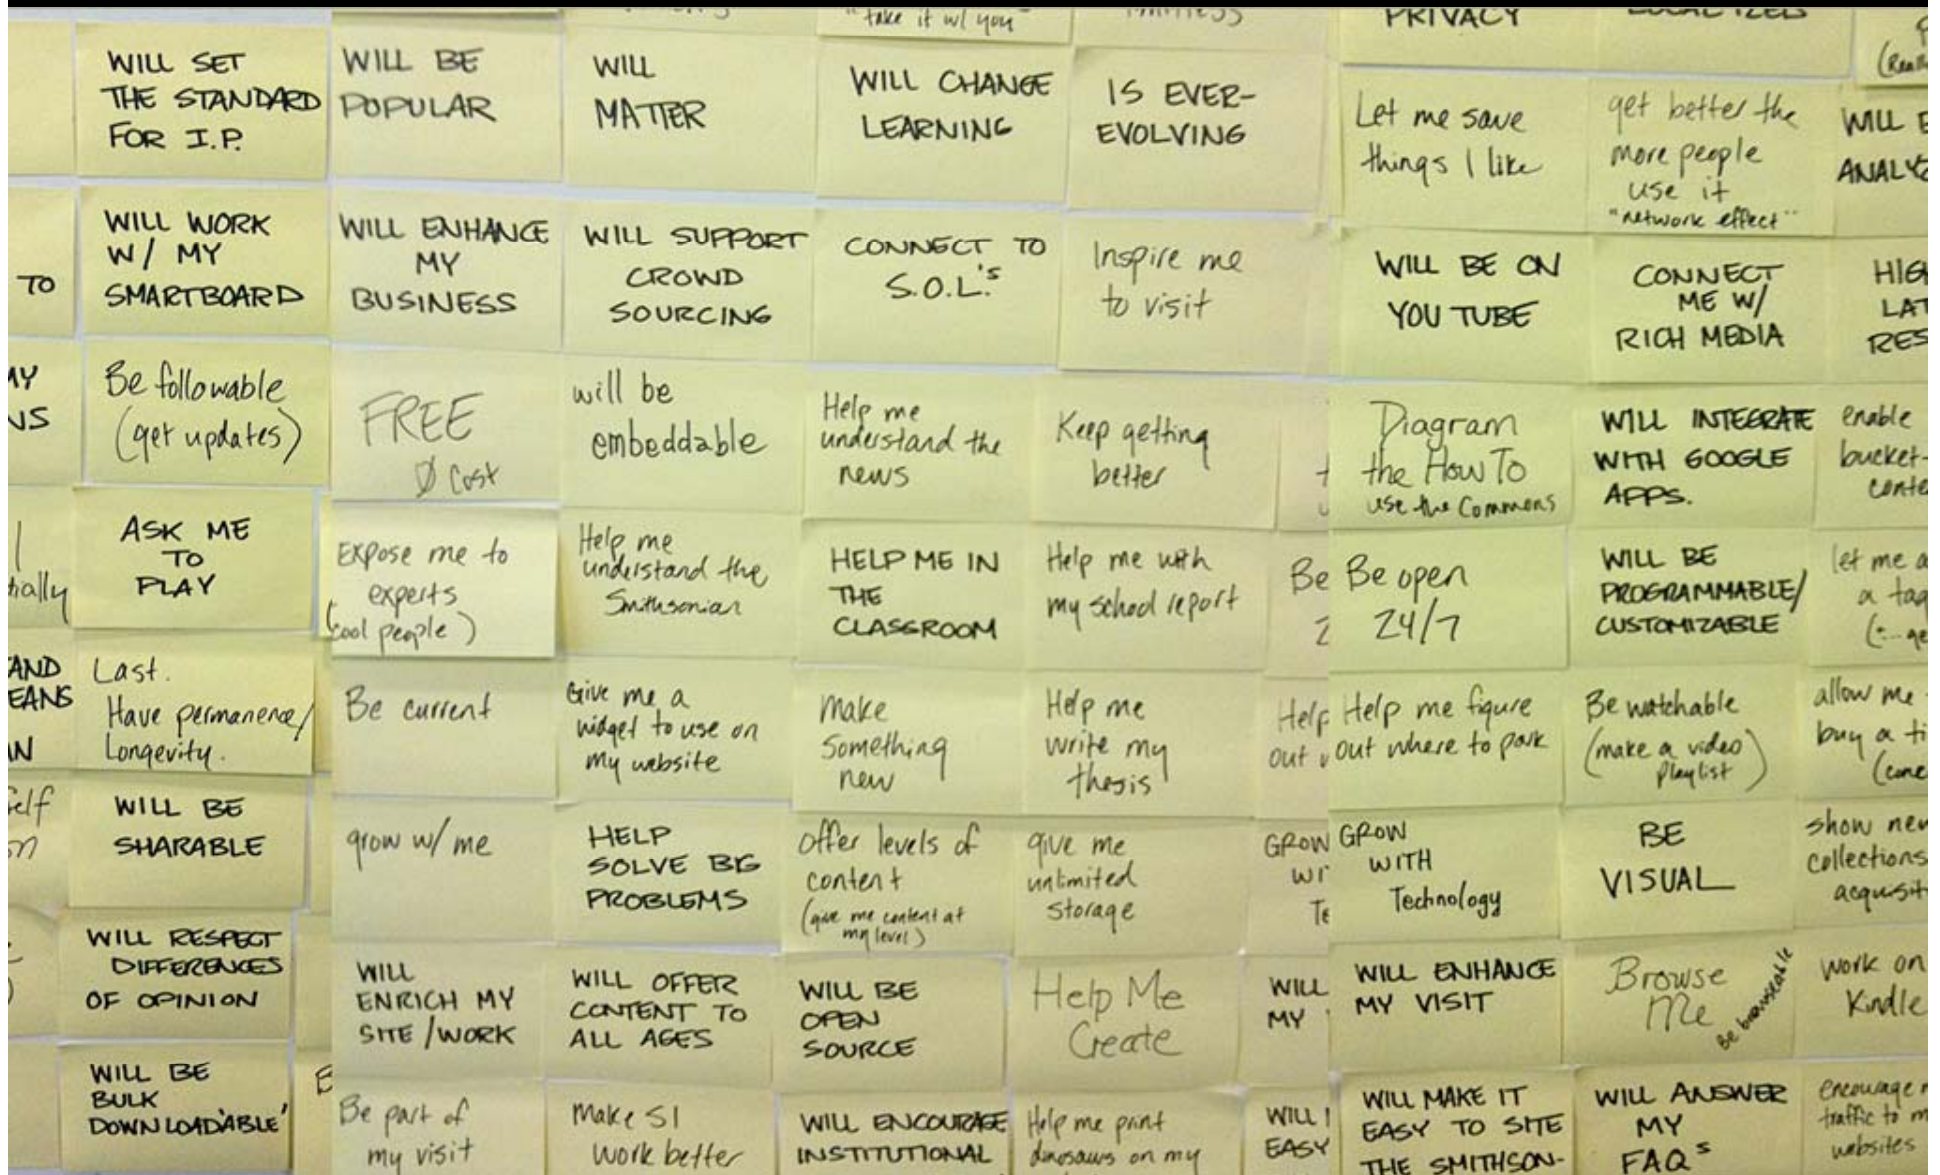 "take it w/ you"
PRIVACY
LOCALIZED
WILL SET
THE STANDARD
FOR I.P.
WILL BE
POPULAR
WILL
MATTER
WILL CHANGE
LEARNING
IS EVER-
EVOLVING
Let me save
things I like
get better the
more people
use it
"network effect"
WILL
TO
WILL WORK
W/ MY
SMARTBOARD
WILL ENHANCE
MY
BUSINESS
WILL SUPPORT
CROWD
SOURCING
CONNECT TO
S.O.L.'s
Inspire me
to visit
WILL BE ON
YOU TUBE
CONNECT
ME W/
RICH MEDIA
Be followable
(get updates)
FREE
Ø Cost
will be
embeddable
Help me
understand the
news
Keep getting
better
Diagram
the How To
use the Commons
WILL INTEGRATE
WITH GOOGLE
APPS.
enable
bucket-
ASK ME
TO
PLAY
Expose me to
experts
(cool people)
Help me
understand the
Smithsonian
HELP ME IN
THE
CLASSROOM
Help me with
my school report
Be
2
Be open
24/7
WILL BE
PROGRAMMABLE/
CUSTOMIZABLE
let me a
a tag
AND
EANS
AN
Last.
Have permanence/
Longevity.
Be current
Give me a
widget to use on
my website
Make
Something
new
Help me
write my
thesis
Help
out
Help me figure
out where to park
Be watchable
(make a video
playlist)
allow me
buy a ti
self
WILL BE
SHARABLE
grow w/ me
HELP
SOLVE BIG
PROBLEMS
Offer levels of
content
(give me content at
my level)
give me
unlimited
storage
GROW
WI
TE
GROW
WITH
Technology
BE
VISUAL
show new
collections
acquisit
WILL RESPECT
DIFFERENCES
OF OPINION
WILL
ENRICH MY
SITE/WORK
WILL OFFER
CONTENT TO
ALL AGES
WILL BE
OPEN
SOURCE
Help Me
Create
WILL
MY
WILL ENHANCE
MY VISIT
Browse
Me
Be browseable
Work on
Kindle
WILL BE
BULK
DOWNLOAD'ABLE'
Be part of
my visit
Make SI
work better
WILL ENCOURAGE
INSTITUTIONAL
Help me print
dinosaurs on my
WILL
EASY
WILL MAKE IT
EASY TO SITE
THE SMITHSON-
WILL ANSWER
MY
FAQs
encourage
traffic to m
websites